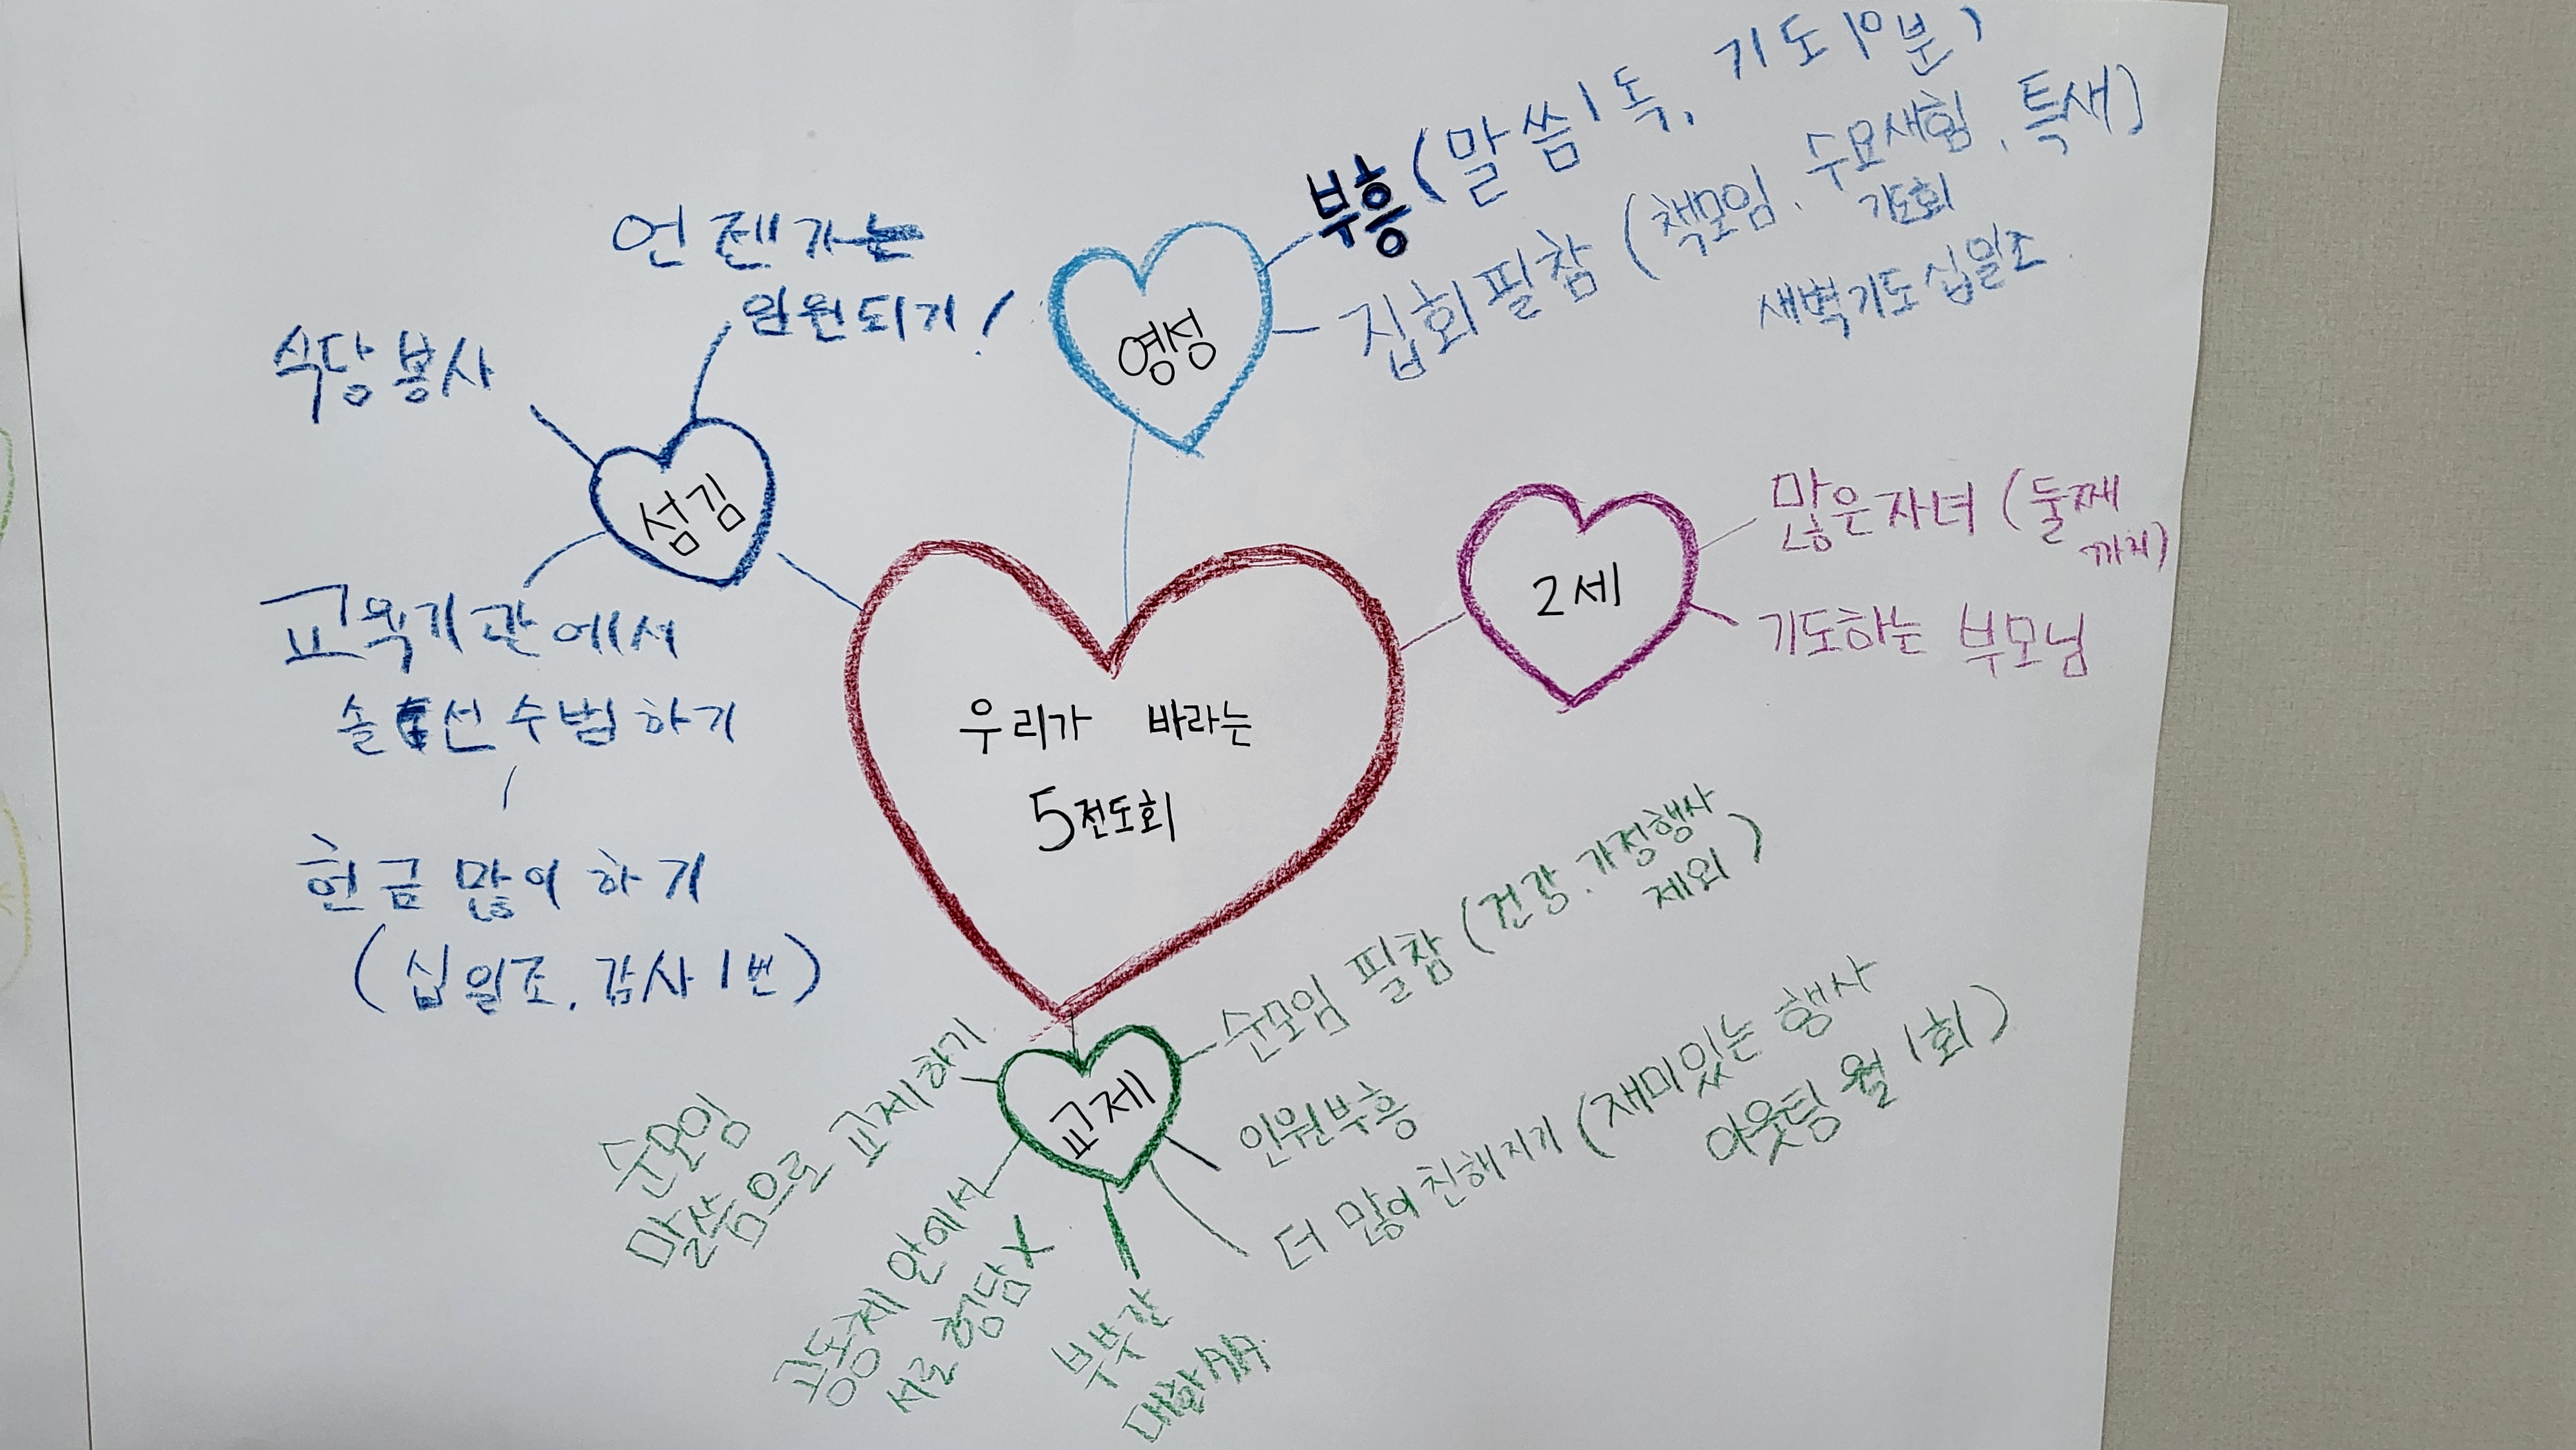 우리가 바라는
5전도회
영성
부흥 (말씀1독, 기도10분)
집회필참 (책모임, 수요새힘, 특새)
기도회
새벽기도 십일조
2세
많은자녀 (둘째
까지)
기도하는 부모님
섬김
언젠가는
임원되기!
식당봉사
교육기관에서
솔선수범하기
헌금 많이 하기
(십일조, 감사1번)
교제
순모임 필참 (건강, 가정행사
제외)
인원부흥
더 많이 친해지기 (재미있는 행사
아웃팅 월 1회)
부부간
공동체 안에서
서로 험담X
순모임
말씀으로 교제하기